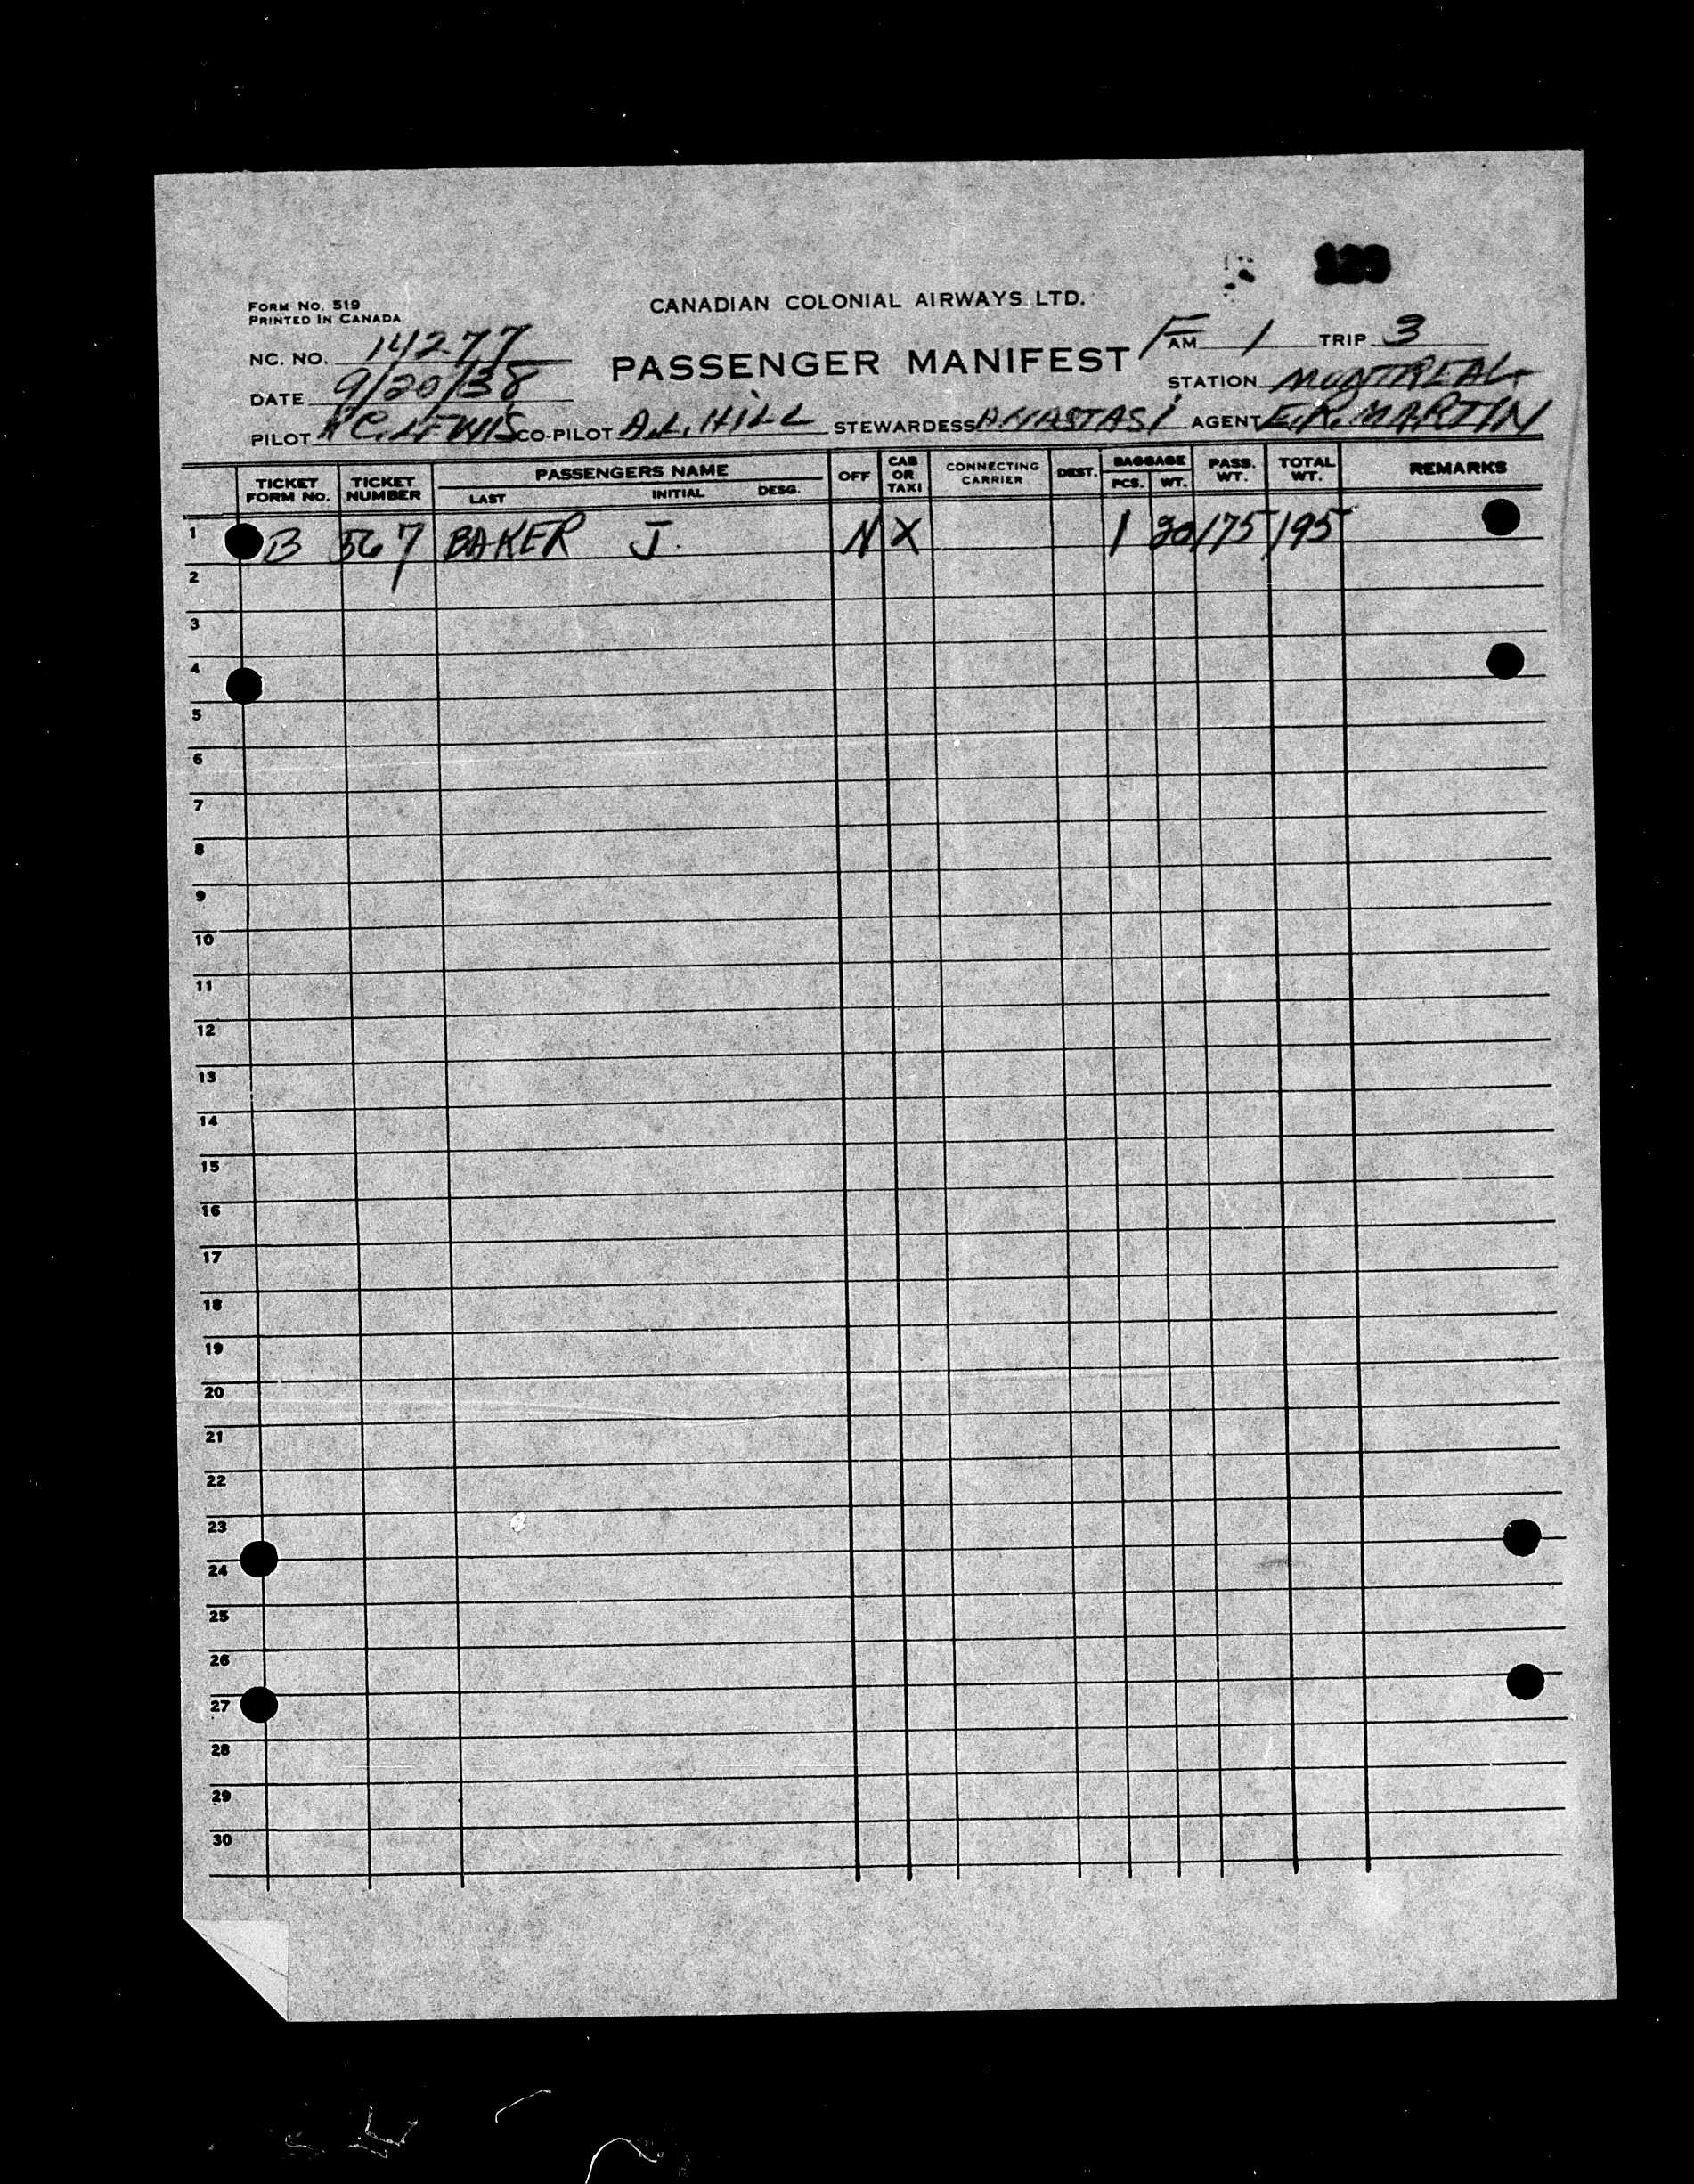 FORM NO. 519
PRINTED IN CANADA
CANADIAN COLONIAL AIRWAYS LTD.
NC. NO. 14277
PASSENGER MANIFEST
FAM 1 TRIP 3
DATE 9/20/38
STATION MONTREAL
PILOT C. LEWIS CO-PILOT A.L. HILL STEWARDESS ANASTASI AGENT E.R. MARTIN
TICKET FORM NO. TICKET NUMBER PASSENGERS NAME LAST INITIAL DESG. OFF CAB OR TAXI CONNECTING CARRIER DEST. BAGGAGE PCS. WT. PASS. WT. TOTAL WT. REMARKS
1 B 567 BAKER J. N X 1 20 175 195
2
3
4
5
6
7
8
9
10
11
12
13
14
15
16
17
18
19
20
21
22
23
24
25
26
27
28
29
30